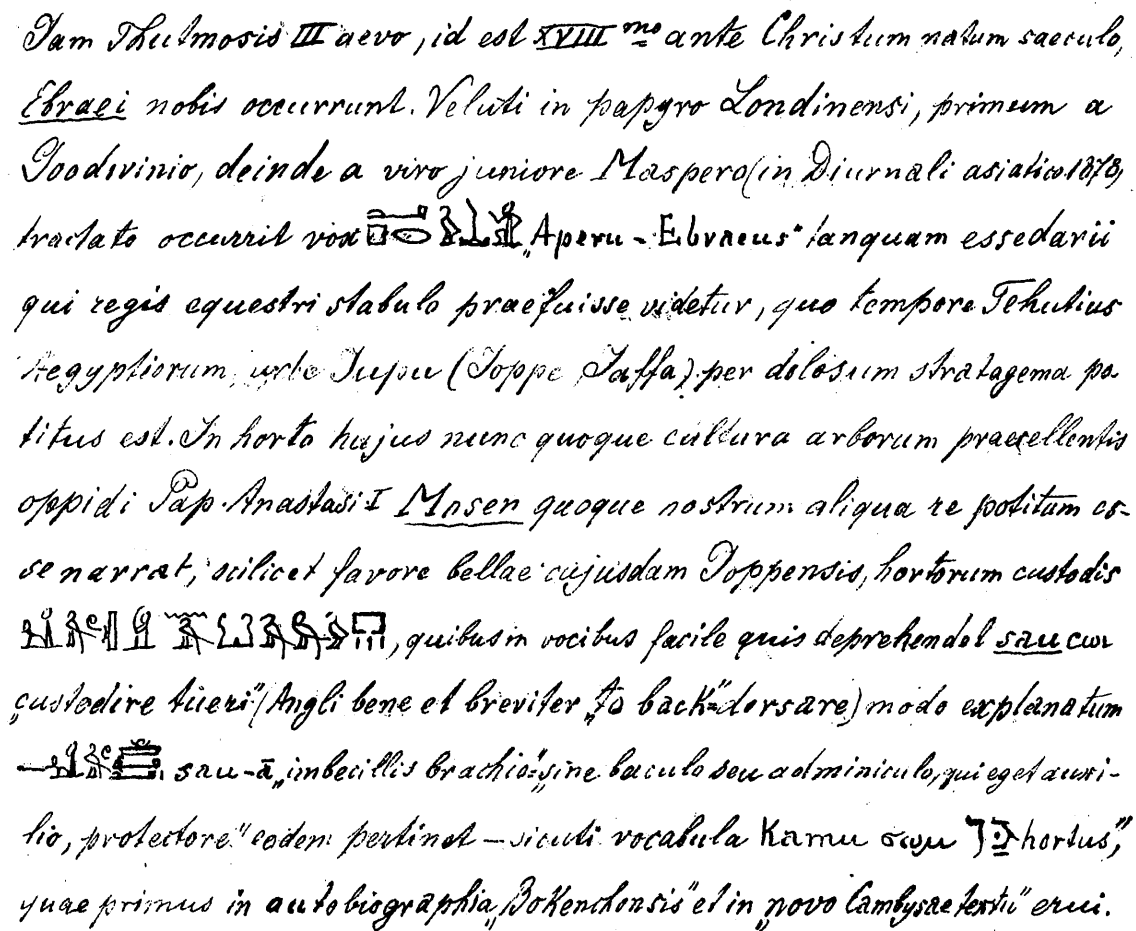 Jam Thutmosis III aevo, id est XVIII mo ante Christum natum saeculo,
Ebraei nobis occurrunt. Veluti in papyro Londinensi, primum a
Goodwinio, deinde a viro juniore Maspero (in Diurnali asiatico 1878,
tractato occurrit vox „Aperu - Ebraeus" tanquam essedarii
qui regis equestri stabulo praefuisse videtur, quo tempore Tehutius
Aegyptiorum, urbe Jupu (Joppe Jaffa) per dolosum stratagema po-
titus est. In horto hujus nunc quoque cultura arborum praecellentis
oppidi Pap. Anastasi I Mosen quoque nostrum aliqua re potitum es-
se narrat, scilicet favore bellae cujusdam Joppensis, hortorum custodis
, quibus in vocibus facile quis deprehendet sau
„custodire tueri" (Angli bene et breviter „to back" = dorsare) modo explanatum
sau-ā „imbecillis brachio" = „sine baculo seu adminiculo, qui eget auxi-
lio, protectore" eodem pertinet – sicuti vocabula Kamu ϭⲱⲙ גן „hortus",
quae primus in autobiographia „Bokenchonsis" et in „novo Cambysae textu" erui.